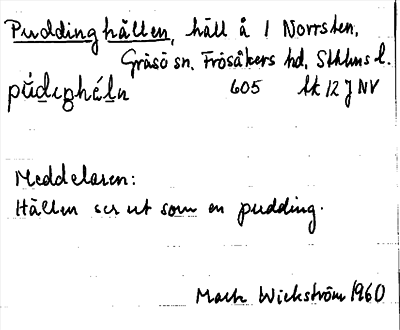 Puddinghällen, häll å 1 Norrsten,
Gräsö sn. Frösåkers hd. Sthlms l.
605 bk 12 J NV
Meddelaren:
Hällen ser ut som en pudding.
Mats Wickström 1960